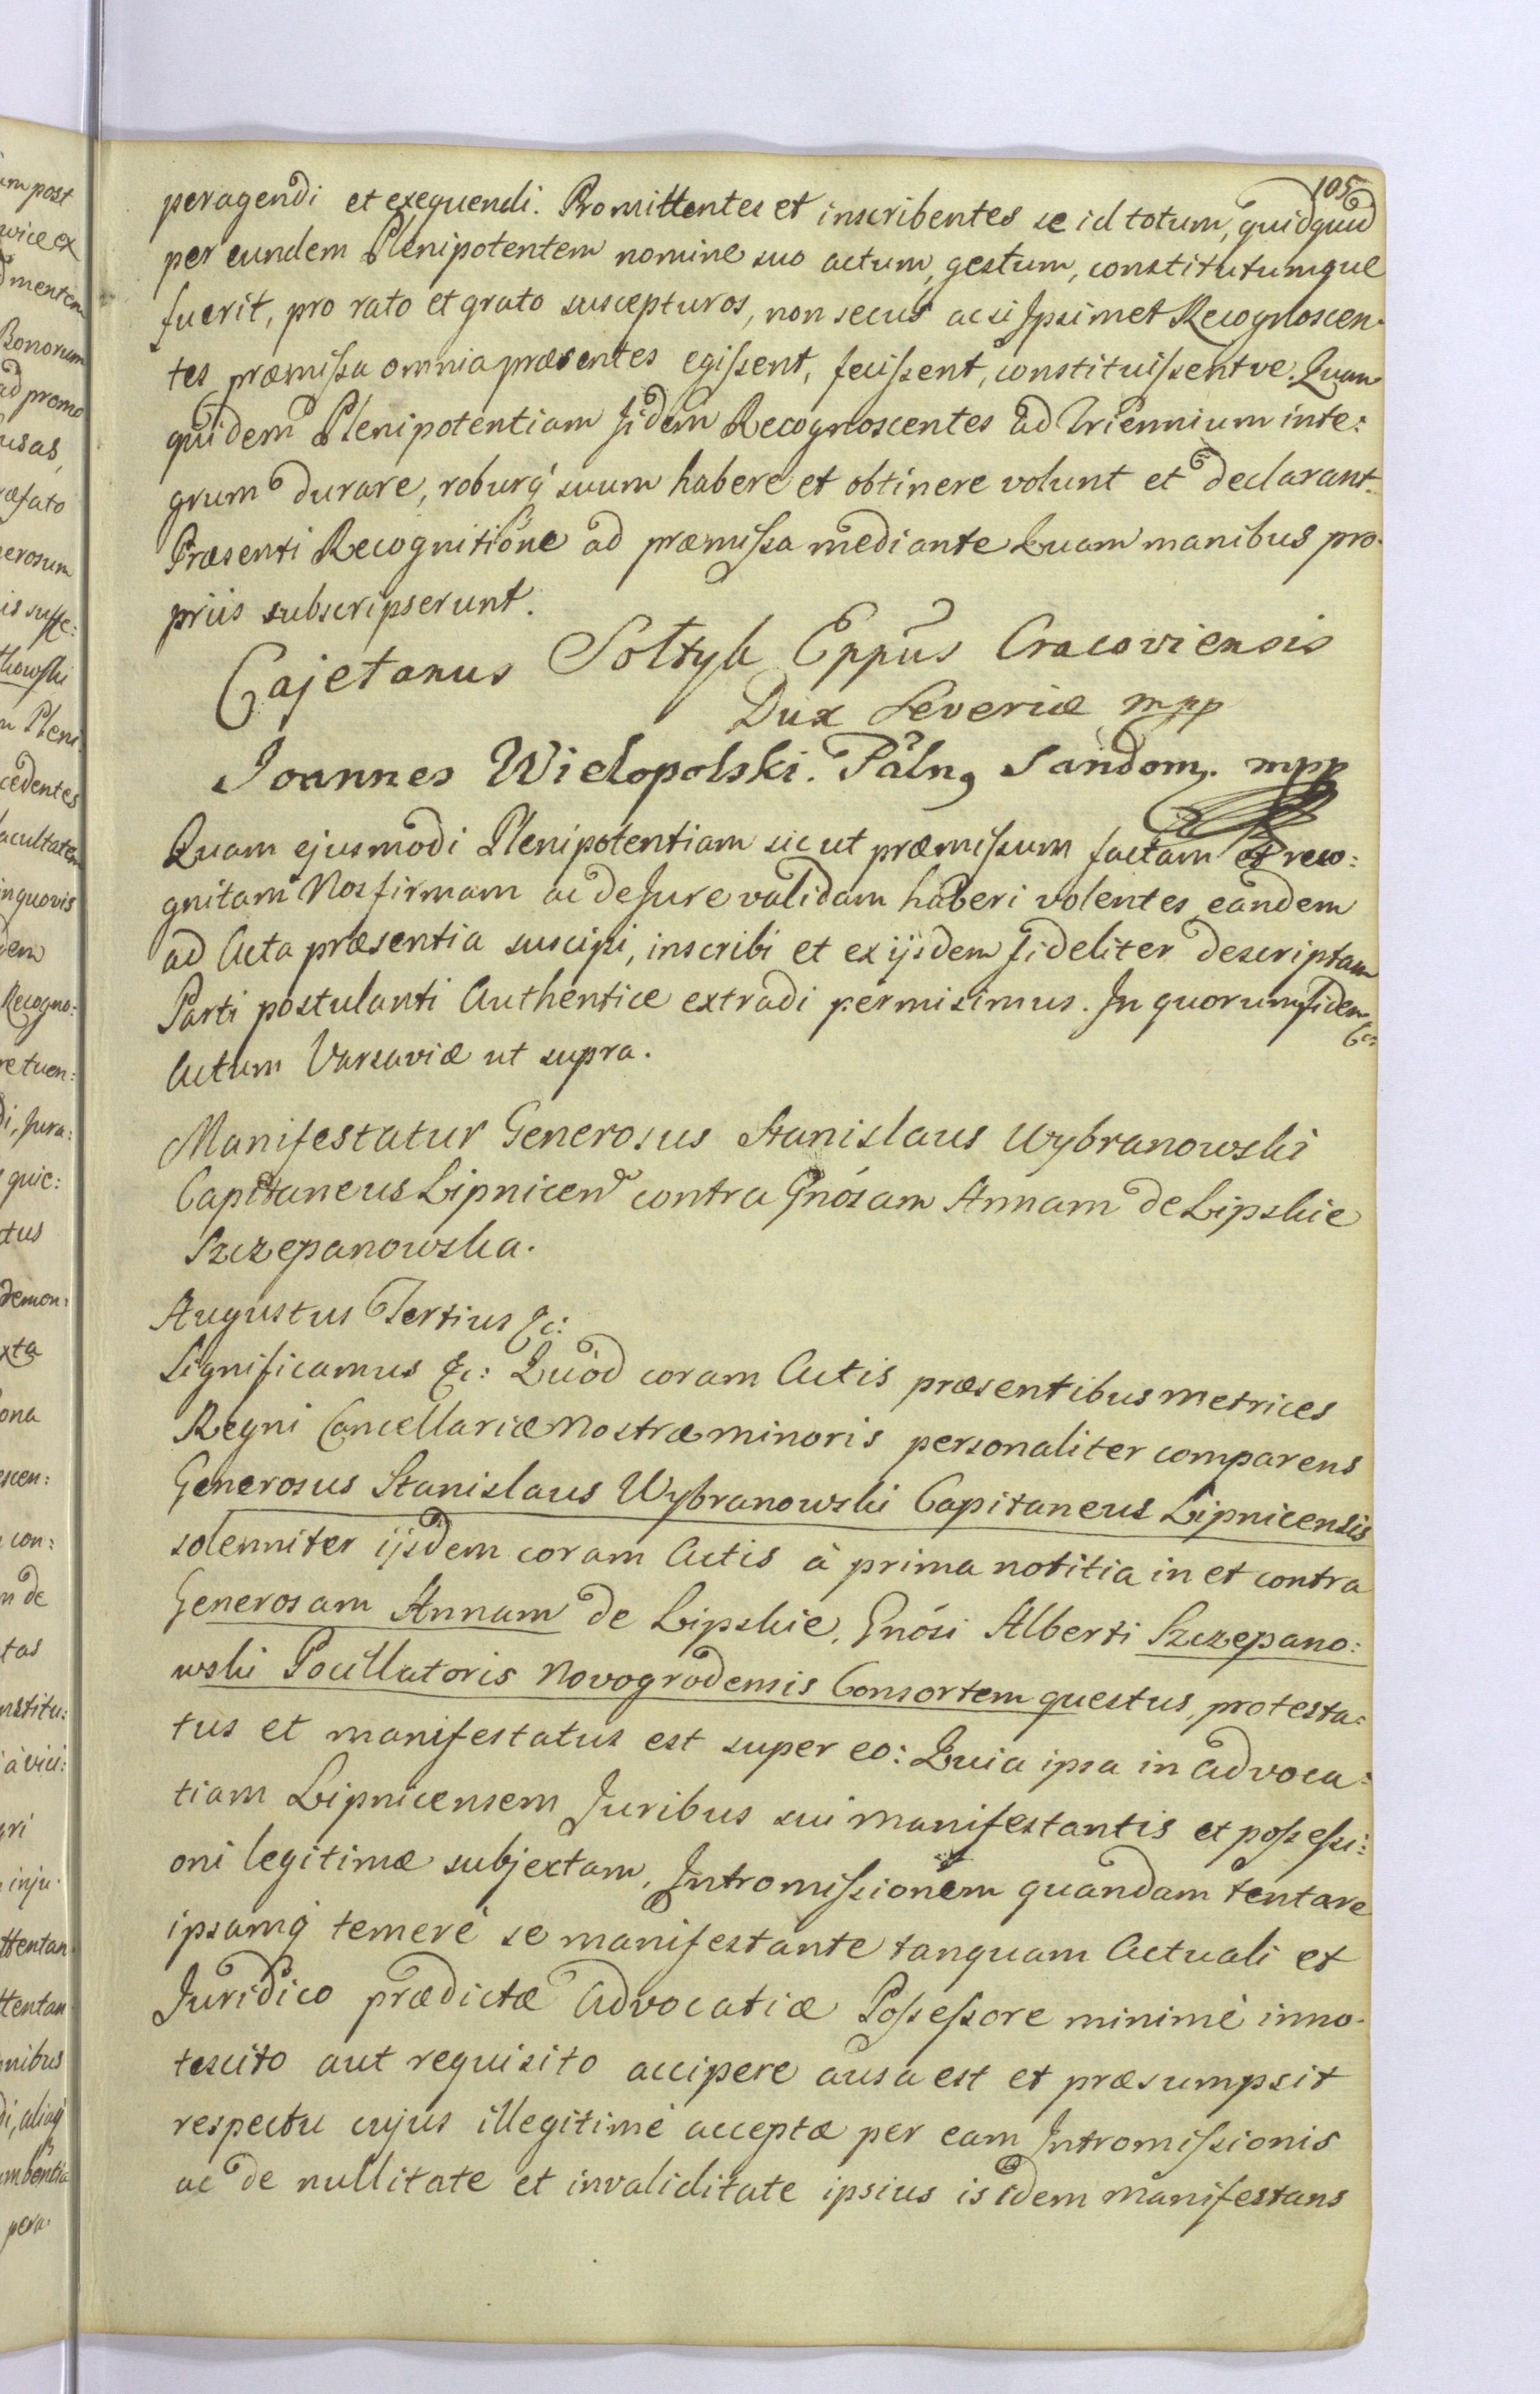 105
peragendi et exequendi. Promittentes et inscribentes se id totum, quidquid
per eundem Plenipotentem nomine suo actum, gestum, constitutumque
fuerit, pro rato et grato suscepturos, non secus ac si Ipsimet Recognoscen-
tes præmissa omnia præsentes egissent, fecissent, constituissentve. Quam
quidem Plenipotentiam Iidem Recognoscentes ad Triennium inte:
grum durare, roburq́ suum habere et obtinere volunt et declarant.
Præsenti Recognitione ad præmissa mediante Quam manibus pro-
priis subscripserunt.
Cajetanus Sołtyk Eppus Cracoviensis
Dux Severiæ mpp
Joannes Wielopolski. Palns Sandom. mpp
Quam ejusmodi Plenipotentiam sicut præmissum factam et reco:
gnitam Nos firmam ac de Jure validam haberi volentes eandem
ad Acta præsentia suscipi, inscribi et ex ijsdem fideliter descriptam
Parti postulanti Authentice extradi permisimus. In quorum fidem
&c:
Actum Varsaviæ ut supra.
Manifestatur Generosus Stanislaus Wybranowski
Capitaneus Lipnicen contra Gnósam Annam de Lipskie
Szczepanowska.
Augustus Tertius &c:
Significamus &c: Quòd coram Actis præsentibus Metrices
Regni Cancellariæ Nostræ minoris personaliter comparens
Generosus Stanislaus Wybranowski Capitaneus Lipnicensis
solenniter ijsdem coram Actis à prima notitia in et contra
Generosam Annam de Lipskie, Gnósi Alberti Szczepano:
wski Pocillatoris Novogrodensis Consortem questus, protesta:
tus et manifestatus est super eo: Quia ipsa in Advoca:
tiam Lipnicensem Juribus sui Manifestantis et possessi:
oni legitimæ subjectam, Intromissionem quandam tentare
ipsamq́ temerè se manifestante tanquam Actuali et
Juridico prædictæ Advocatiæ Possessore minimè inno-
tescito aut requisito accipere ausa est et præsumpsit
respectu cujus illegitimè acceptæ per eam Intromissionis
ac de nullitate et invaliditate ipsius is idem Manifestans